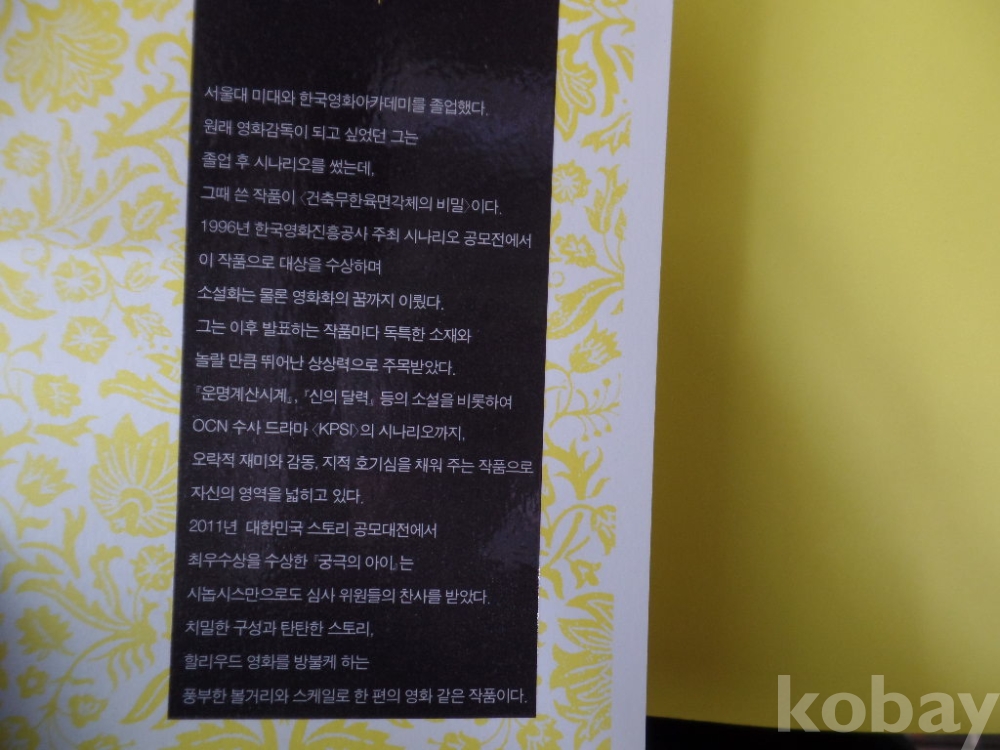 서울대 미대와 한국영화아카데미를 졸업했다.
원래 영화감독이 되고 싶었던 그는
졸업 후 시나리오를 썼는데,
그때 쓴 작품이 〈건축무한육면각체의 비밀〉이다.
1996년 한국영화진흥공사 주최 시나리오 공모전에서
이 작품으로 대상을 수상하며
소설화는 물론 영화화의 꿈까지 이뤘다.
그는 이후 발표하는 작품마다 독특한 소재와
놀랄 만큼 뛰어난 상상력으로 주목받았다.
『운명계산시계』, 『신의 달력』 등의 소설을 비롯하여
OCN 수사 드라마 〈KPSI〉의 시나리오까지,
오락적 재미와 감동, 지적 호기심을 채워 주는 작품으로
자신의 영역을 넓히고 있다.
2011년 대한민국 스토리 공모대전에서
최우수상을 수상한 『궁극의 아이』는
시놉시스만으로도 심사 위원들의 찬사를 받았다.
치밀한 구성과 탄탄한 스토리,
할리우드 영화를 방불케 하는
풍부한 볼거리와 스케일로 한 편의 영화 같은 작품이다.
kobay